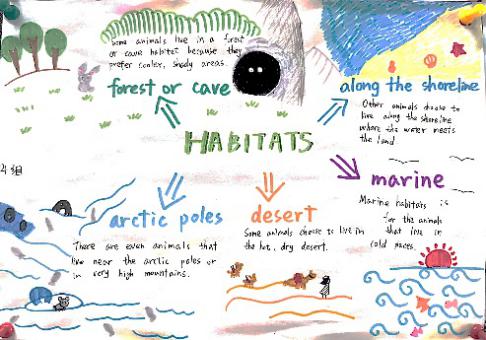 Some animals live in a forest
or cave habitat because they
prefer cooler, shady areas.
forest or cave
along the shoreline
Other animals choose to
live along the shoreline
where the water meets
the land
HABITATS
marine
Marine habitats is
for the animals
that live in
cold places.
arctic poles
There are even animals that
live near the arctic poles or
in very high mountains.
desert
Some animals choose to live in
the hot, dry desert.